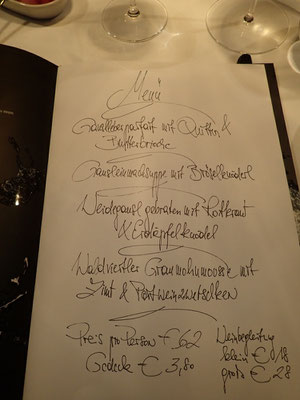 Menü
Gansleberparfait mit Quitten &
Butterbrioche
Ganseleinmachsuppe mit Bröselknödel
Weidegansl gebraten mit Rotkraut
& Erdäpfelknödel
Waldviertler Graumohnmousse mit
Zimt & Portweinzwetschken
Preis pro Person € 62
Gedeck € 3,80
Weinbegleitung
klein € 18
groß € 28